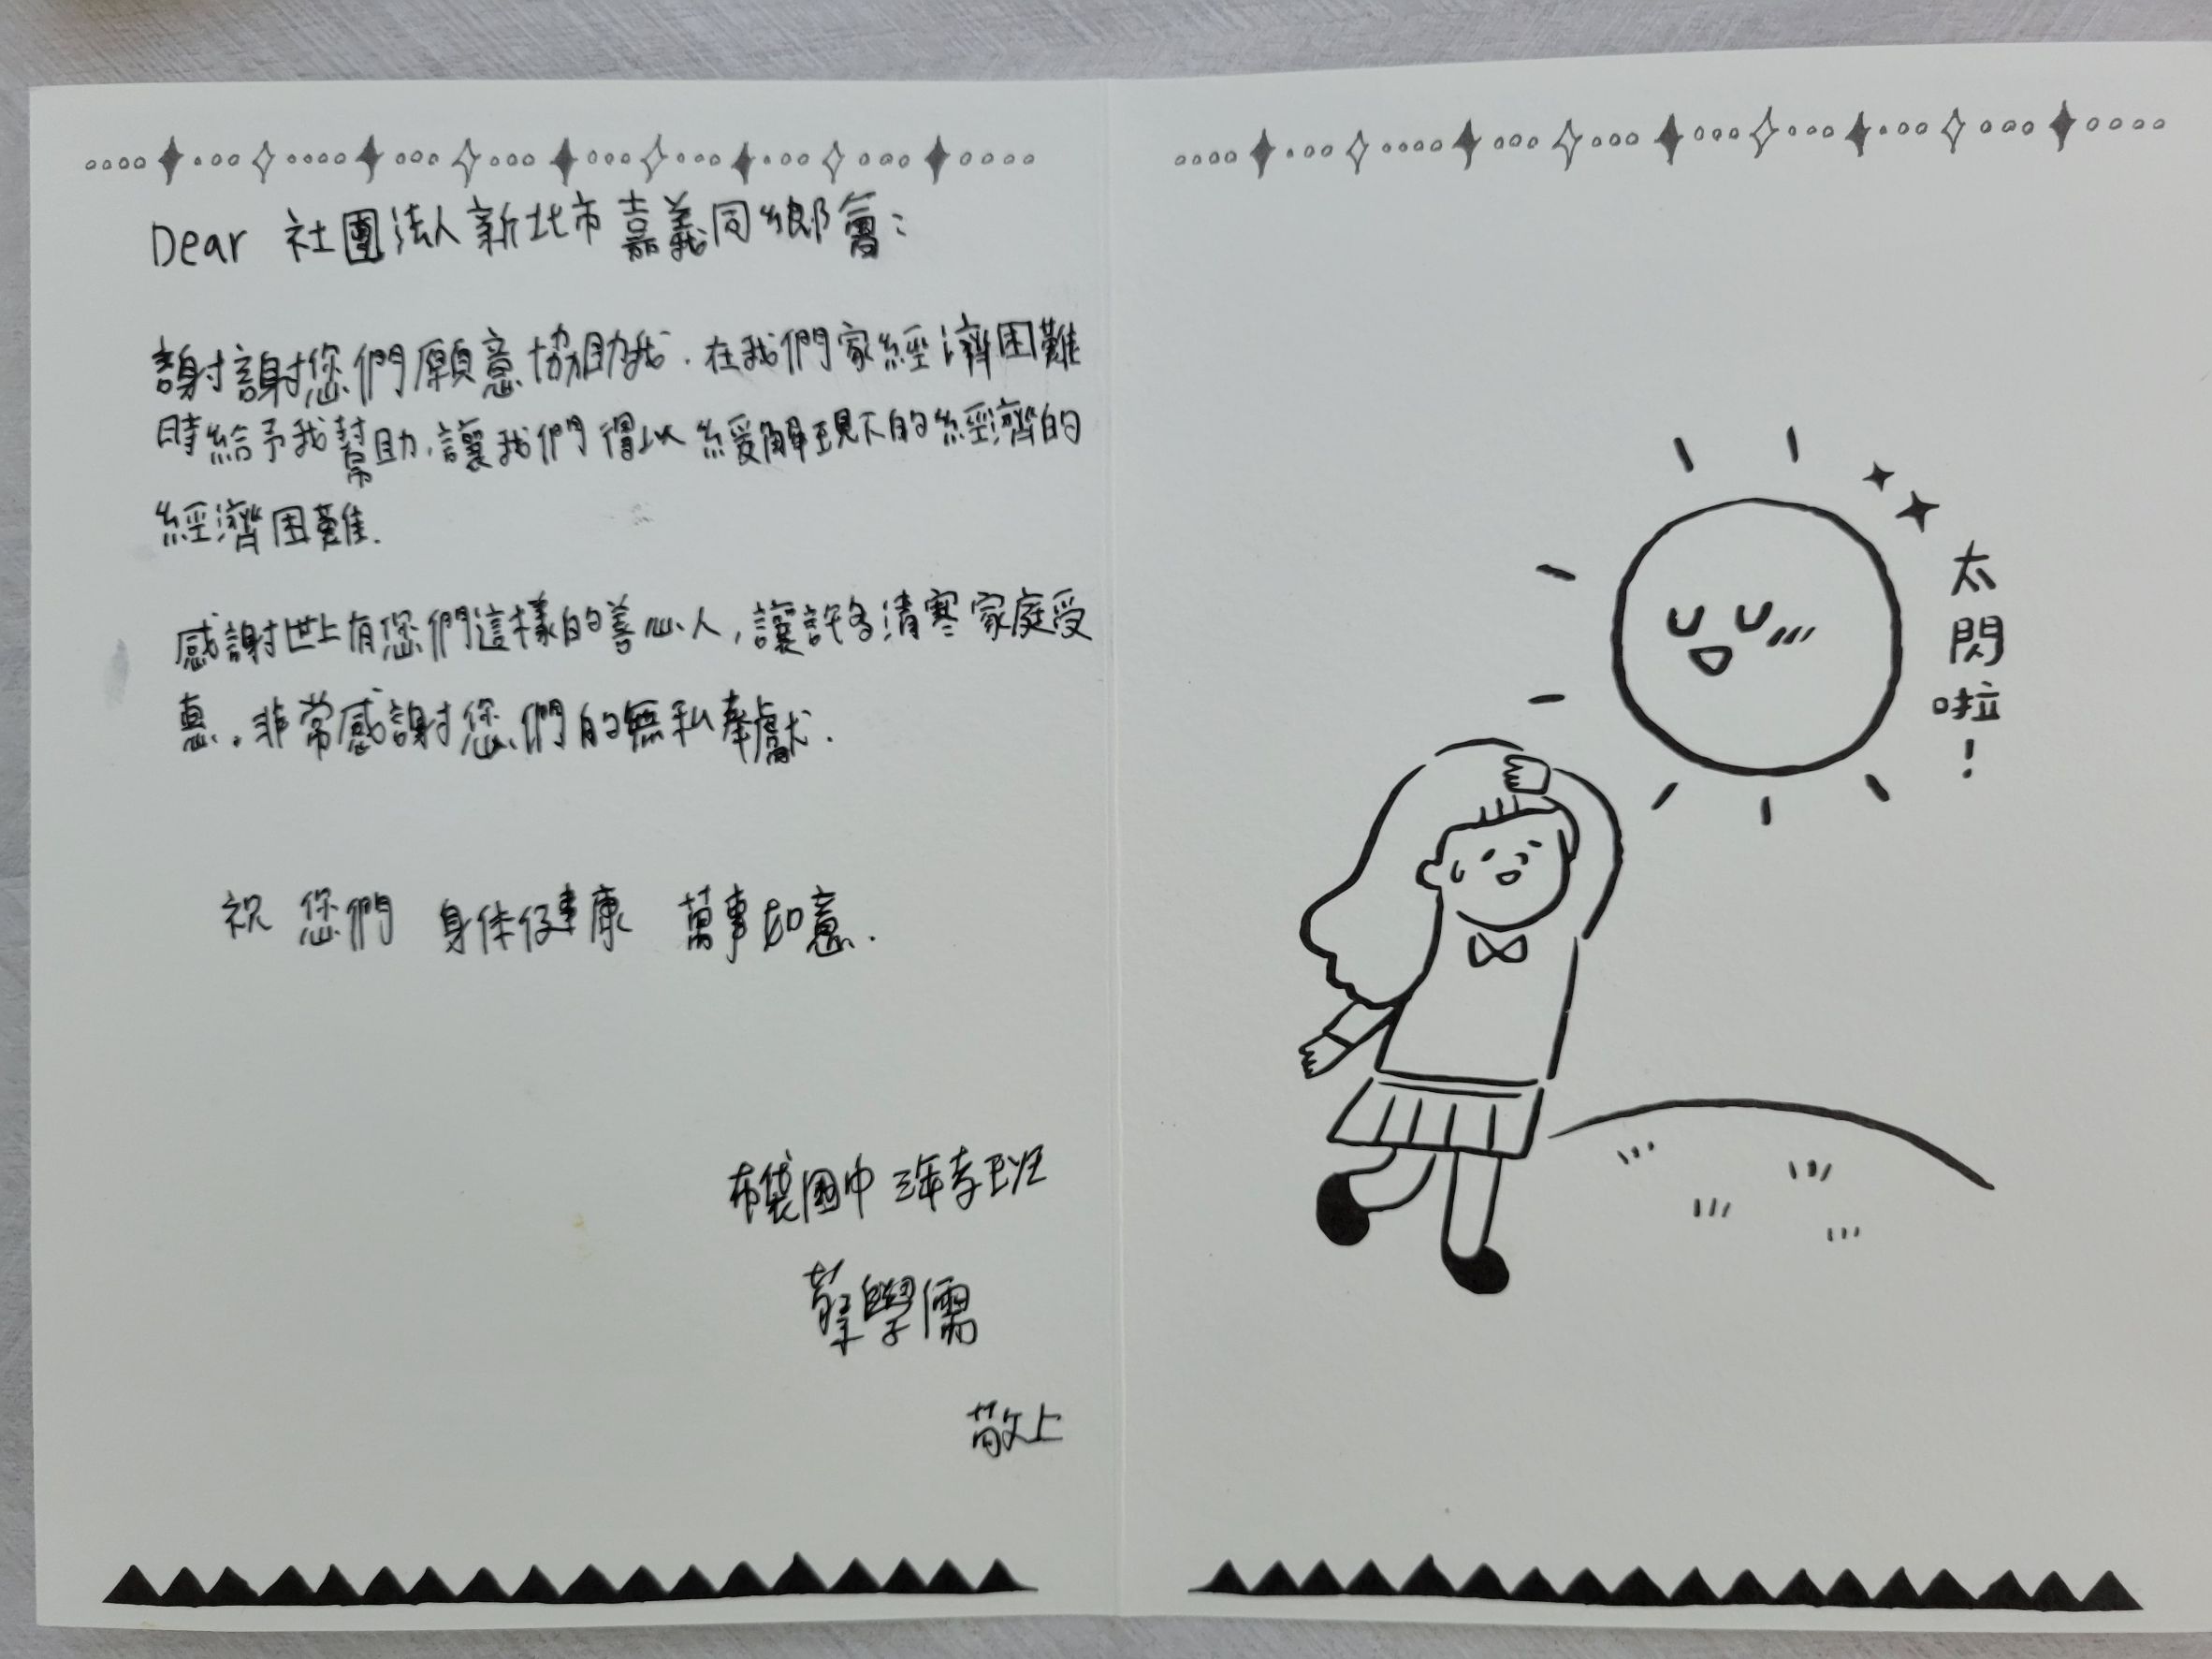 Dear 社團法人新北市嘉義同鄉會：
謝謝您們願意協助我．在我們家經濟困難
時給予我幫助，讓我們得以緩解現下的經濟的
經濟困難．
感謝世上有您們這樣的善心人，讓許多清寒家庭受
惠。非常感謝您們的無私奉獻．
祝 您們 身体健康 萬事如意．
布袋國中 三年孝班
蔡學儒
敬上
太閃啦！